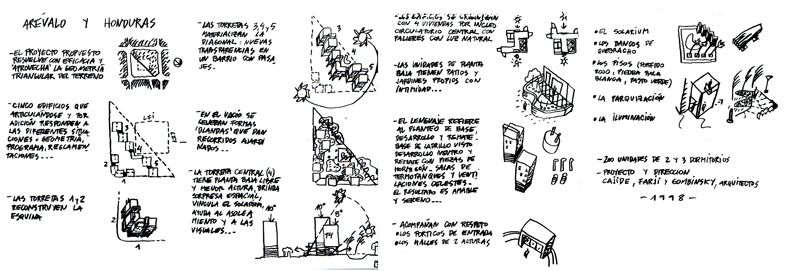 ARÉVALO Y HONDURAS
-EL PROYECTO PROPUESTO
RESUELVE CON EFICACIA Y
"APROVECHA" LA GEOMETRÍA
TRIANGULAR DEL TERRENO
-CINCO EDIFICIOS QUE
ARTICULÁNDOSE Y POR
ADICIÓN RESPONDEN A
LAS DIFERENTES SITUA
CIONES: GEOMETRÍA,
PROGRAMA, REGLAMEN
TACIONES...
-LAS TORRETAS 1 y 2
RECONSTRUYEN LA
ESQUINA
-LAS TORRETAS 3,4 y 5
MATERIALIZAN LA
DIAGONAL: NUEVAS
TRANSPARENCIAS EN
UN BARRIO CON PASA
JES.
-EN EL VACÍO SE
GENERAN FORMAS
"BLANDAS" QUE DAN
RECORRIDOS AJARDI
NADOS...
-LA TORRETA CENTRAL (4)
TIENE PLANTA BAJA LIBRE
Y MEJOR ALTURA, BRINDA
SORPRESA ESPACIAL,
VINCULA EL SOLARIUM,
AYUDA AL ASOLEA
MIENTO Y A LAS
VISUALES...
-LOS EDIFICIOS SE ORGANIZAN
CON 4 VIVIENDAS POR NÚCLEO
CIRCULATORIO CENTRAL CON
PALIERES CON LUZ NATURAL
-LAS UNIDADES DE PLANTA
BAJA TIENEN PATIOS Y
JARDINES PROPIOS CON
INTIMIDAD...
-EL LENGUAJE REFIERE
AL PLANTEO DE BASE,
DESARROLLO Y REMATE.
BASE DE LADRILLO VISTO
DESARROLLO NEUTRO Y
REMATE CON PIEZAS DE
HORMIGÓN. SALAS DE
TERMOTANQUES Y VENTI
LACIONES CELESTES.
EL RESULTADO ES AMABLE
Y SERENO...
-ACOMPAÑAN CON RESPETO
•LOS PÓRTICOS DE ENTRADA
•LOS HALLES DE 2 ALTURAS
•EL SOLARIUM
•LOS BANCOS DE
QUEBRACHO
•LOS PISOS (PÓRFIDO
ROJO, PIEDRA BOLA
BLANCA, PASTO VERDE)
•LA PARQUIZACIÓN
•LA ILUMINACIÓN
-200 UNIDADES DE 2 Y 3 DORMITORIOS
-PROYECTO Y DIRECCIÓN
CAJIDE, FARJÍ Y GOMBINSKY, ARQUITECTOS
-1998-